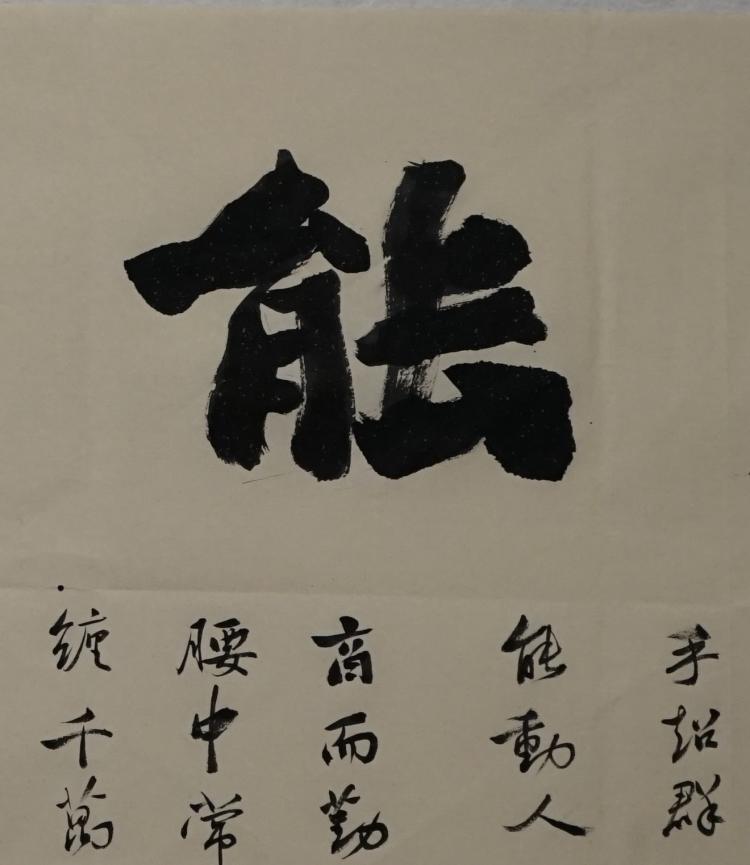 能
手超群
能動人
商而勤
腰中常
纏千萬